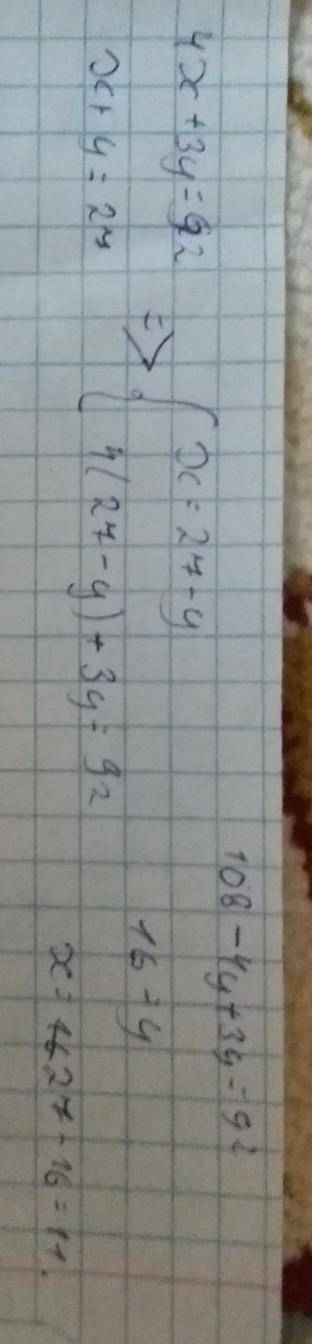 4x + 3y = 92
x + y = 27
=> { x = 27 - y
4(27 - y) + 3y = 92
108 - 4y + 3y = 92
16 = y
x = 27 - 16 = 11.